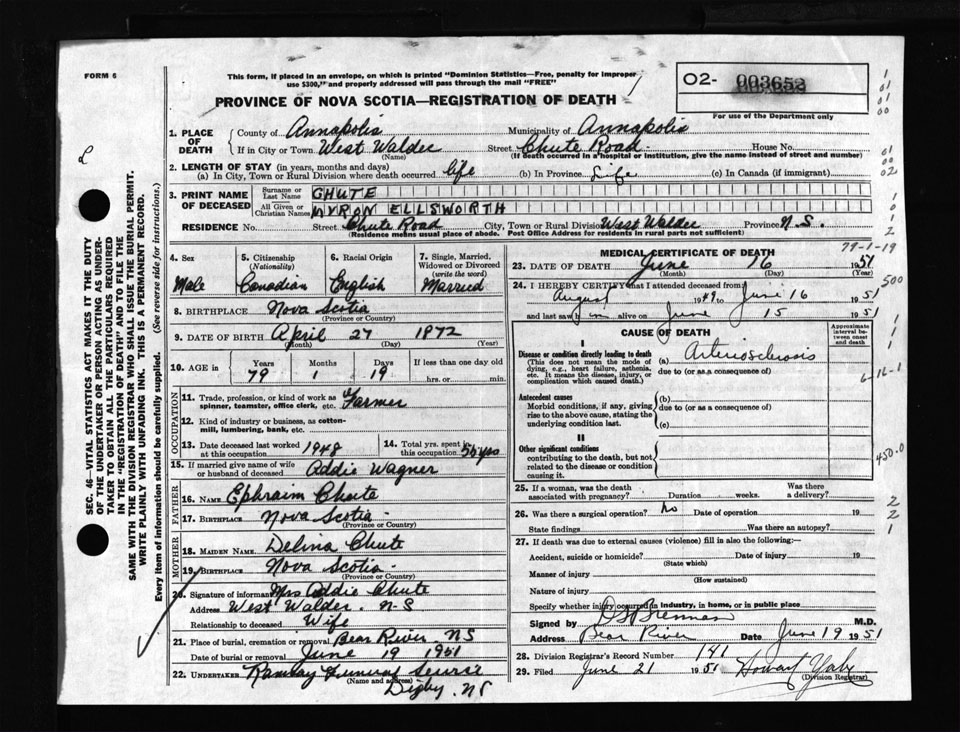 FORM 6
This form, if placed in an envelope, on which is printed "Dominion Statistics—Free, penalty for improper
use $300," and properly addressed will pass through the mail "FREE"
02- 003652
For use of the Department only
PROVINCE OF NOVA SCOTIA—REGISTRATION OF DEATH
1. PLACE OF DEATH { County of Annapolis Municipality of Annapolis
If in City or Town West Waldec (Name) Street Chute Road House No.
(If death occurred in a hospital or institution, give the name instead of street and number)
2. LENGTH OF STAY (in years, months and days)
(a) In City, Town or Rural Division where death occurred life (b) In Province Life (c) In Canada (if immigrant)
3. PRINT NAME OF DECEASED Surname or Last Name CHUTE
All Given or Christian Names MYRON ELLSWORTH
RESIDENCE No. Street Chute Road City, Town or Rural Division West Waldec Province N.S.
(Residence means usual place of abode. Post Office Address for residents in rural parts not sufficient)
4. Sex Male
5. Citizenship (Nationality) Canadian
6. Racial Origin English
7. Single, Married, Widowed or Divorced (write the word) Married
8. BIRTHPLACE Nova Scotia
9. DATE OF BIRTH April 27 1872
(Month) (Day) (Year)
10. AGE in Years 79 Months 1 Days 19 If less than one day old
hrs. or min.
OCCUPATION
11. Trade, profession, or kind of work as
spinner, teamster, office clerk, etc. Farmer
12. Kind of industry or business, as cotton-
mill, lumbering, bank, etc.
13. Date deceased last worked at this occupation 1948
14. Total yrs. spent in this occupation 55 yrs
15. If married give name of wife
or husband of deceased Addie Wagner
FATHER
16. NAME Ephraim Chute
17. BIRTHPLACE Nova Scotia
(Province or Country)
MOTHER
18. MAIDEN NAME Delina Chute
19. BIRTHPLACE Nova Scotia
(Province or Country)
20. Signature of informant Mrs Addie Chute
Address West Waldec. N-S
Relationship to deceased Wife
21. Place of burial, cremation or removal Bear River, NS
Date of burial or removal June 19 1951
22. UNDERTAKER Ramsay Funeral
(Name and address) Digby. NS
MEDICAL CERTIFICATE OF DEATH
79-1-19
23. DATE OF DEATH June 16 1951
(Month) (Day) (Year)
24. I HEREBY CERTIFY that I attended deceased from
August 1949 to June 16 1951
and last saw him alive on June 15 1951
500
CAUSE OF DEATH
Approximate interval between onset and death
I
Disease or condition directly leading to death
(This does not mean the mode of
dying, e.g., heart failure, asthenia,
etc. It means the disease, injury, or
complication which caused death.)
(a) Arteriosclerosis
due to (or as a consequence of)
6-16-1
Antecedent causes
Morbid conditions, if any, giving
rise to the above cause, stating the
underlying condition last.
(b)
due to (or as a consequence of)
(c)
II
Other significant conditions
contributing to the death, but not
related to the disease or condition
causing it.
450-0
25. If a woman, was the death
associated with pregnancy? Duration weeks. Was there
a delivery?
26. Was there a surgical operation? No Date of operation 19
State findings Was there an autopsy?
27. If death was due to external causes (violence) fill in also the following:—
Accident, suicide or homicide? Date of injury 19
(State which)
Manner of injury
(How sustained)
Nature of injury
Specify whether injury occurred in industry, in home, or in public place
Signed by Brennan M.D.
Address Bear River Date June 19 1951
28. Division Registrar's Record Number 141
29. Filed June 21 1951 Howart
(Division Registrar)
SEC. 46—VITAL STATISTICS ACT MAKES IT THE DUTY
OF THE UNDERTAKER OR PERSON ACTING AS UNDER-
TAKER TO OBTAIN ALL THE PARTICULARS REQUIRED
IN THE "REGISTRATION OF DEATH" AND TO FILE THE
SAME WITH THE DIVISION REGISTRAR WHO SHALL ISSUE THE BURIAL PERMIT.
WRITE PLAINLY WITH UNFADING INK. THIS IS A PERMANENT RECORD.
Every item of information should be carefully supplied. (See reverse side for instructions.)